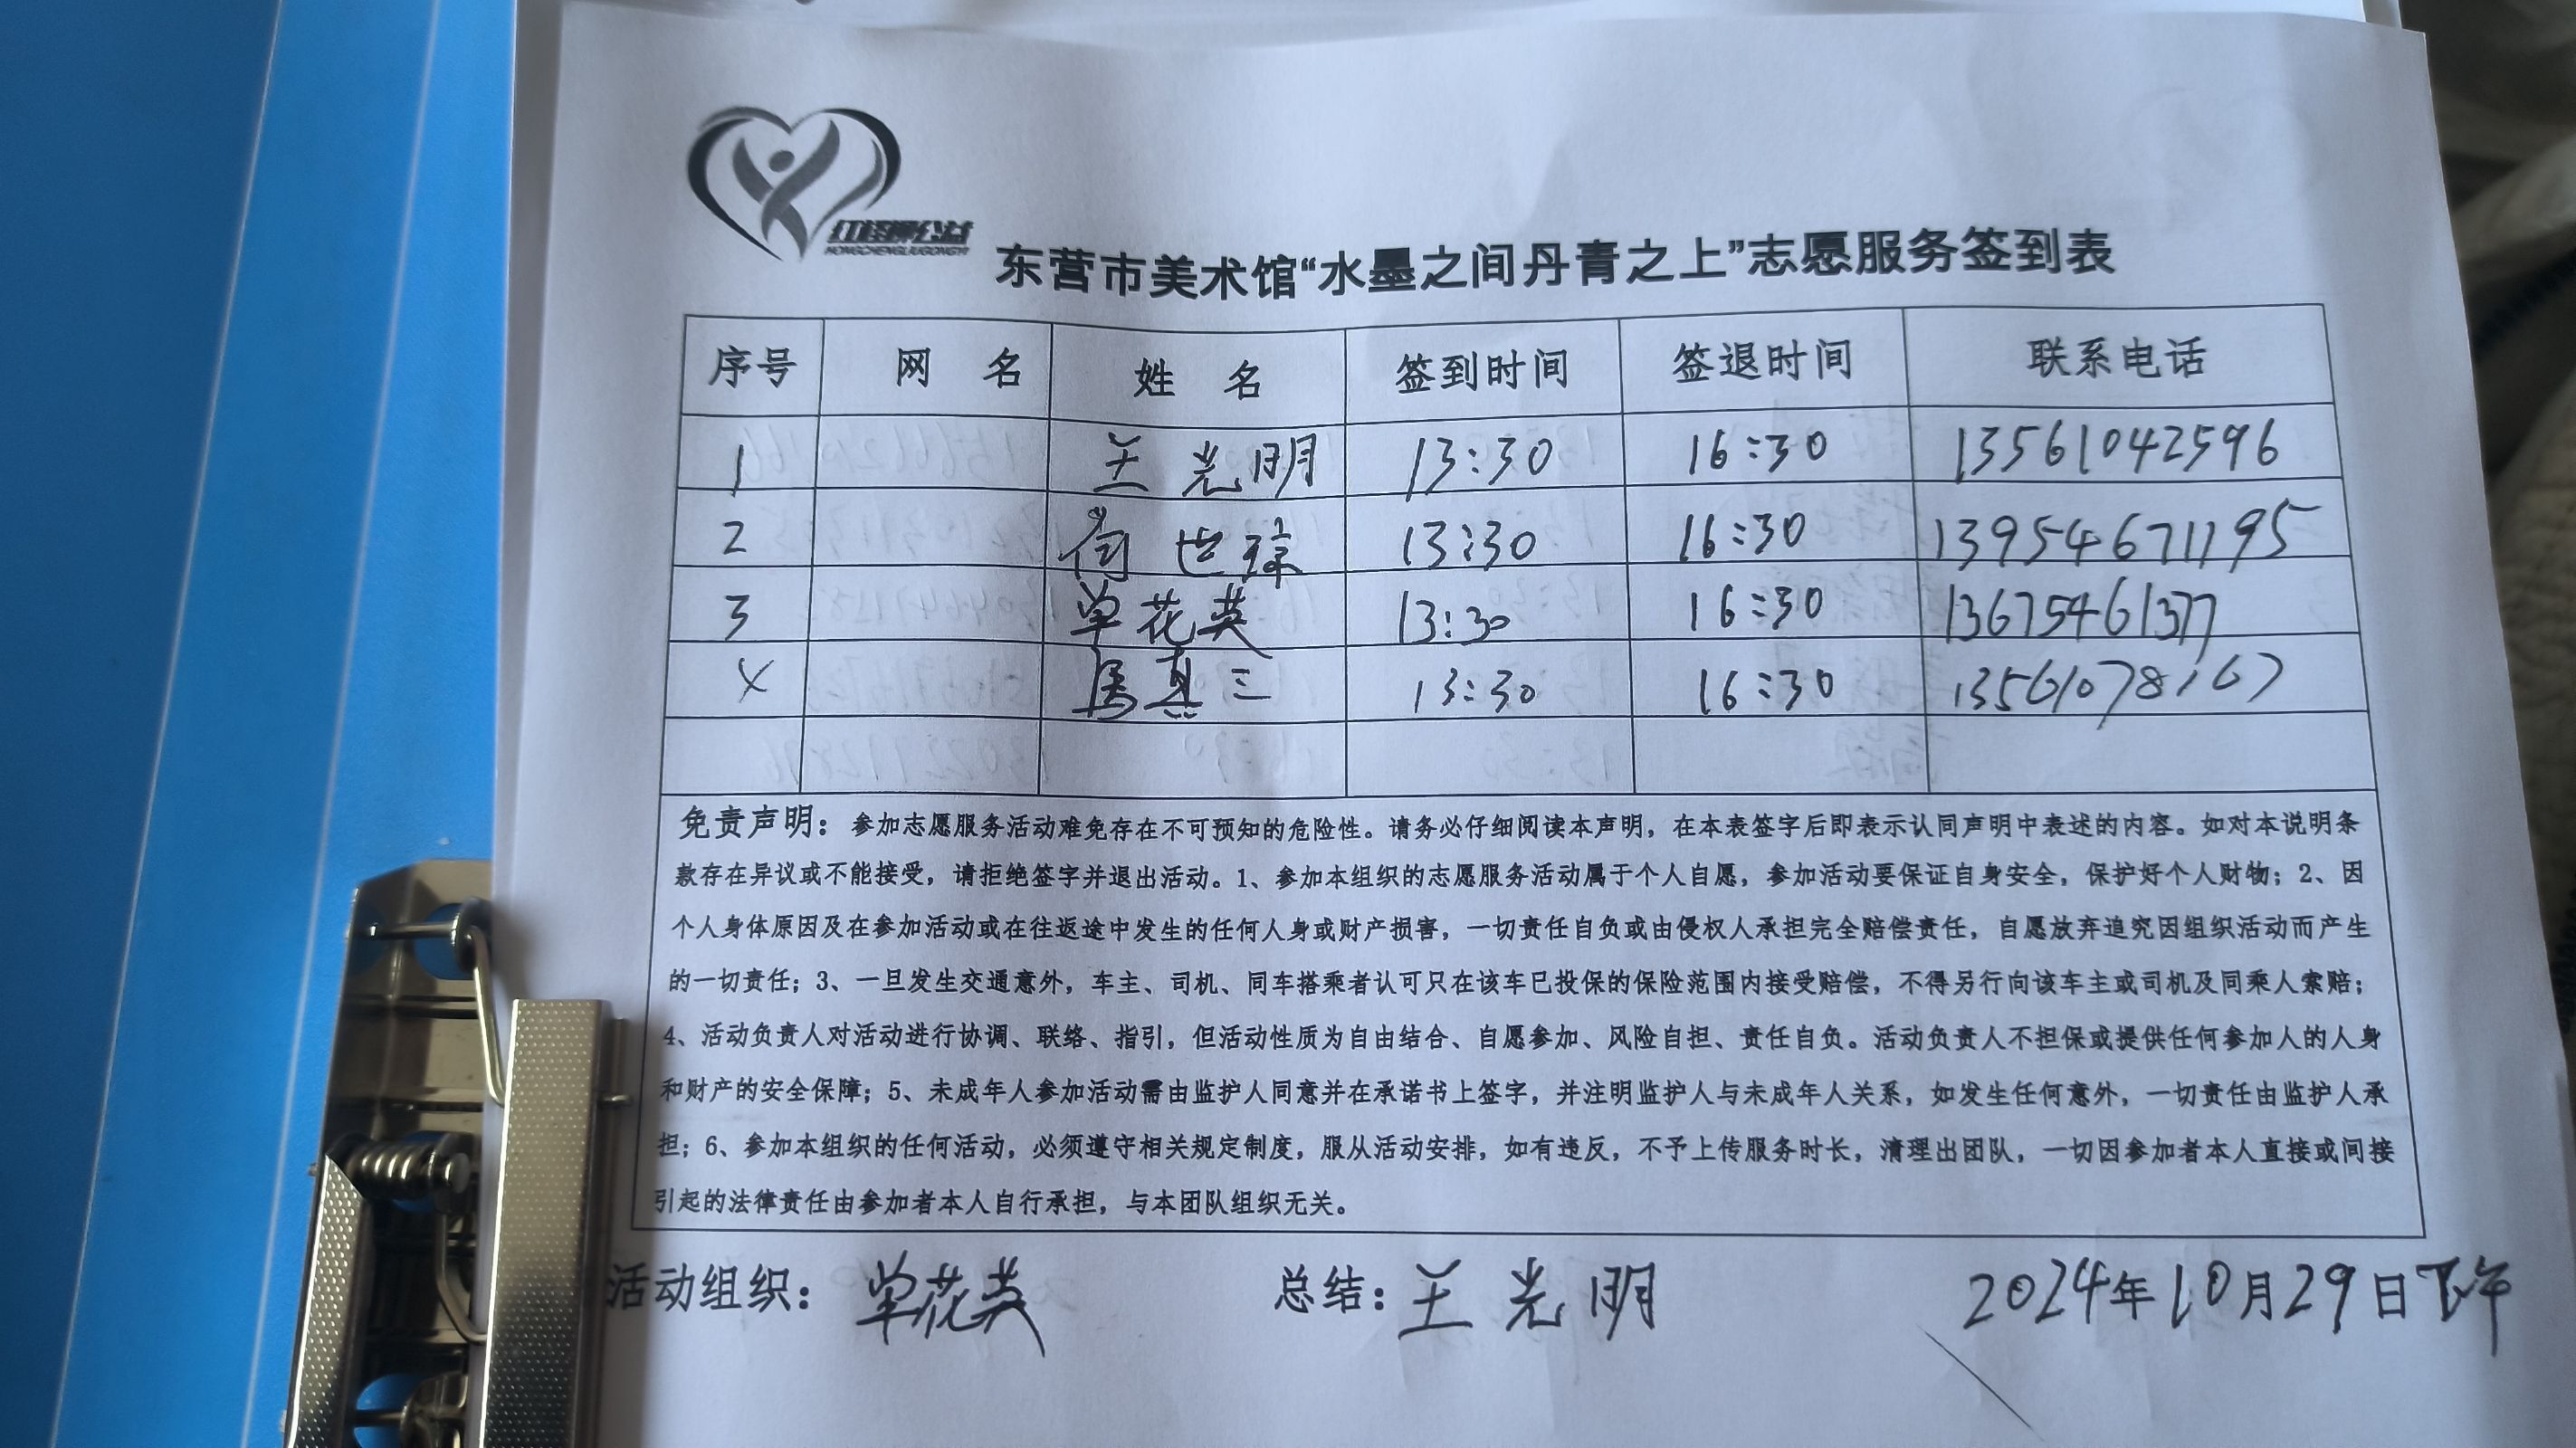 红橙柳公益
HONGCHENGLIUGONGYI
东营市美术馆“水墨之间丹青之上”志愿服务签到表
序号 网 名 姓 名 签到时间 签退时间 联系电话
1 王光明 13:30 16:30 13561042596
2 世琼 13:30 16:30 13954671195
3 单花英 13:30 16:30 13675461377
4 真三 13:30 16:30 13561078167
免责声明：参加志愿服务活动难免存在不可预知的危险性。请务必仔细阅读本声明，在本表签字后即表示认同声明中表述的内容。如对本说明条
款存在异议或不能接受，请拒绝签字并退出活动。1、参加本组织的志愿服务活动属于个人自愿，参加活动要保证自身安全，保护好个人财物；2、因
个人身体原因及在参加活动或在往返途中发生的任何人身或财产损害，一切责任自负或由侵权人承担完全赔偿责任，自愿放弃追究因组织活动而产生
的一切责任；3、一旦发生交通意外，车主、司机、同车搭乘者认可只在该车已投保的保险范围内接受赔偿，不得另行向该车主或司机及同乘人索赔；
4、活动负责人对活动进行协调、联络、指引，但活动性质为自由结合、自愿参加、风险自担、责任自负。活动负责人不担保或提供任何参加人的人身
和财产的安全保障；5、未成年人参加活动需由监护人同意并在承诺书上签字，并注明监护人与未成年人关系，如发生任何意外，一切责任由监护人承
担；6、参加本组织的任何活动，必须遵守相关规定制度，服从活动安排，如有违反，不予上传服务时长，清理出团队，一切因参加者本人直接或间接
引起的法律责任由参加者本人自行承担，与本团队组织无关。
活动组织：单花英 总结：王光明 2024年10月29日下午